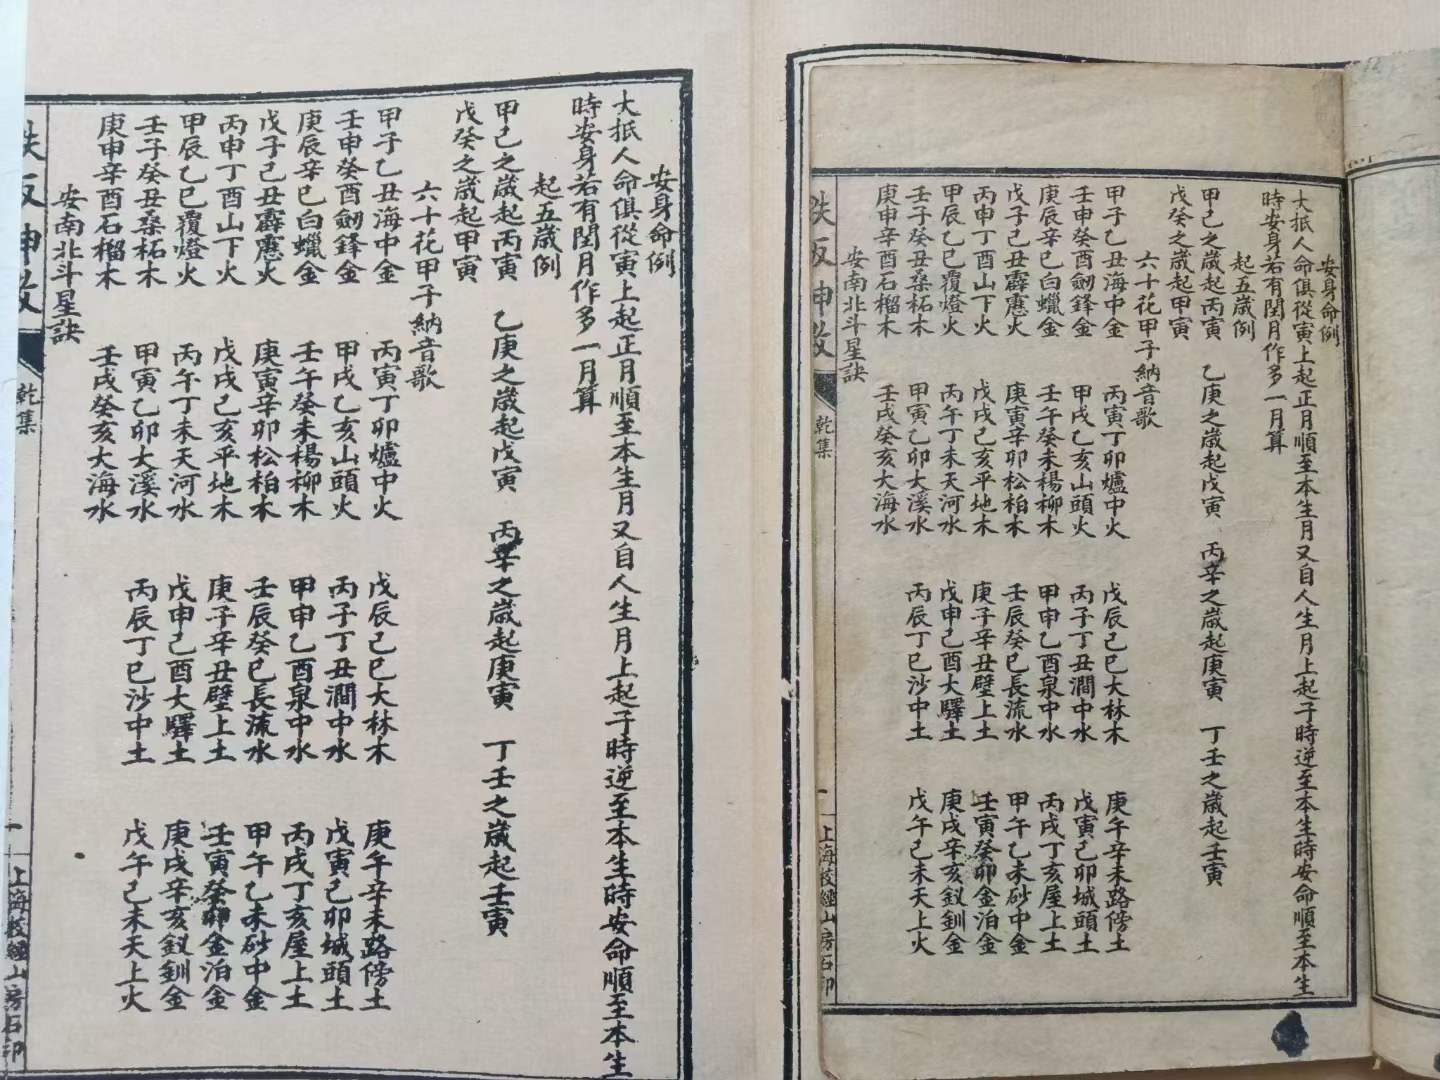 安身命例
大抵人命俱從寅上起正月順至本生月又自人生月上起子時逆至本生時安命順至本生
時安身若有閏月作多一月算
起五歲例
甲己之歲起丙寅 乙庚之歲起戊寅 丙辛之歲起庚寅 丁壬之歲起壬寅
戊癸之歲起甲寅
六十花甲子納音歌
甲子乙丑海中金 丙寅丁卯爐中火 戊辰己巳大林木 庚午辛未路傍土
壬申癸酉劒鋒金 甲戌乙亥山頭火 丙子丁丑澗中水 戊寅己卯城頭土
庚辰辛巳白蠟金 壬午癸未楊柳木 甲申乙酉泉中水 丙戌丁亥屋上土
戊子己丑霹靂火 庚寅辛卯松柏木 壬辰癸巳長流水 甲午乙未砂中金
丙申丁酉山下火 戊戌己亥平地木 庚子辛丑壁上土 壬寅癸卯金泊金
甲辰乙巳覆燈火 丙午丁未天河水 戊申己酉大驛土 庚戌辛亥釵釧金
壬子癸丑桑柘木 甲寅乙卯大溪水 丙辰丁巳沙中土 戊午己未天上火
庚申辛酉石榴木 壬戌癸亥大海水
安南北斗星訣
乾集 一 上海校經山房石印
安身命例
大抵人命俱從寅上起正月順至本生月又自人生月上起子時逆至本生時安命順至本生
時安身若有閏月作多一月算
起五歲例
甲己之歲起丙寅 乙庚之歲起戊寅 丙辛之歲起庚寅 丁壬之歲起壬寅
戊癸之歲起甲寅
六十花甲子納音歌
甲子乙丑海中金 丙寅丁卯爐中火 戊辰己巳大林木 庚午辛未路傍土
壬申癸酉劒鋒金 甲戌乙亥山頭火 丙子丁丑澗中水 戊寅己卯城頭土
庚辰辛巳白蠟金 壬午癸未楊柳木 甲申乙酉泉中水 丙戌丁亥屋上土
戊子己丑霹靂火 庚寅辛卯松柏木 壬辰癸巳長流水 甲午乙未砂中金
丙申丁酉山下火 戊戌己亥平地木 庚子辛丑壁上土 壬寅癸卯金泊金
甲辰乙巳覆燈火 丙午丁未天河水 戊申己酉大驛土 庚戌辛亥釵釧金
壬子癸丑桑柘木 甲寅乙卯大溪水 丙辰丁巳沙中土 戊午己未天上火
庚申辛酉石榴木 壬戌癸亥大海水
安南北斗星訣
乾集 一 上海校經山房石印